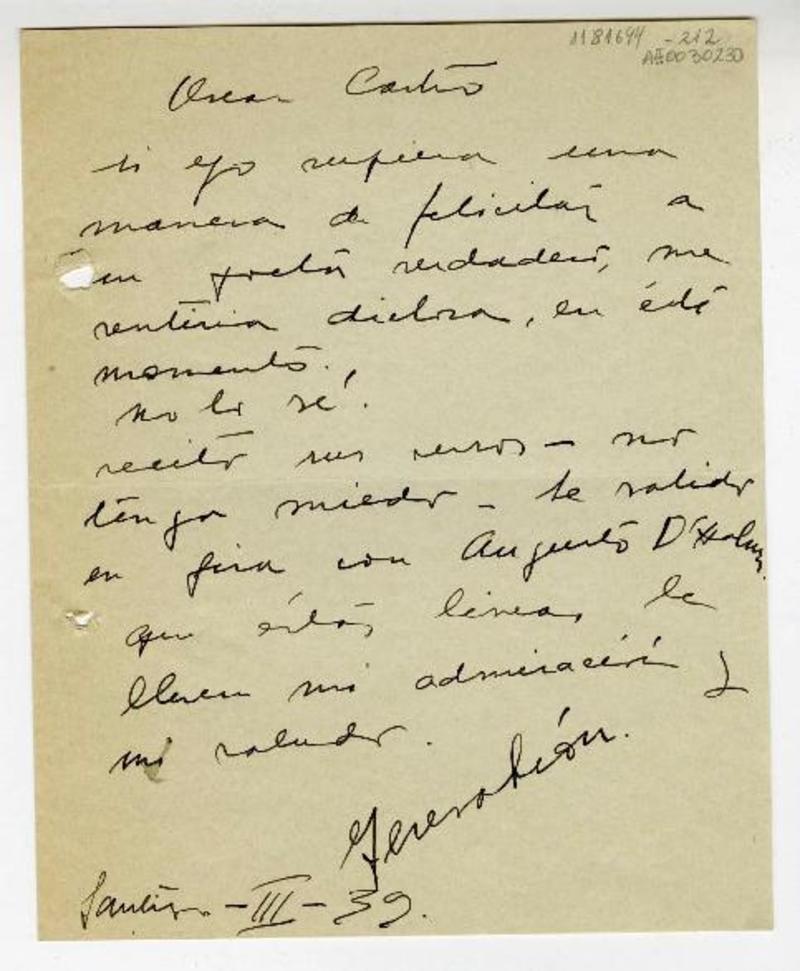 1181644 -212
AE0030230
Oscar Castro
si yo supiera una
manera de felicitar a
un poeta verdadero, me
sentiria dichosa, en éste
momento.
no lo sé!
recito sus versos – no
tenga miedo – he salido
en gira con Augusto D'Halmar.
que éstas lineas le
lleven mi admiración y
mi saludo.
Teresa León.
Santiago – III – 39.